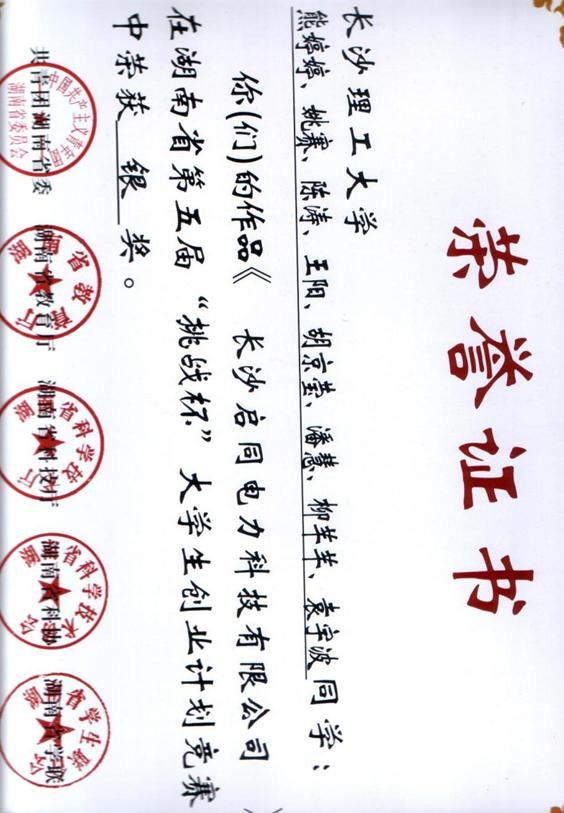 荣誉证书
长沙理工大学
熊婷婷、姚赛、陈涛、王阳、胡京莹、潘慧、柳芊芊、袁宇波同学：
你(们)的作品《 长沙启同电力科技有限公司
在湖南省第五届“挑战杯”大学生创业计划竞赛
中荣获 银 奖。
共青团湖南省委 湖南省教育厅 湖南省科技厅 湖南省科协 湖南省学联